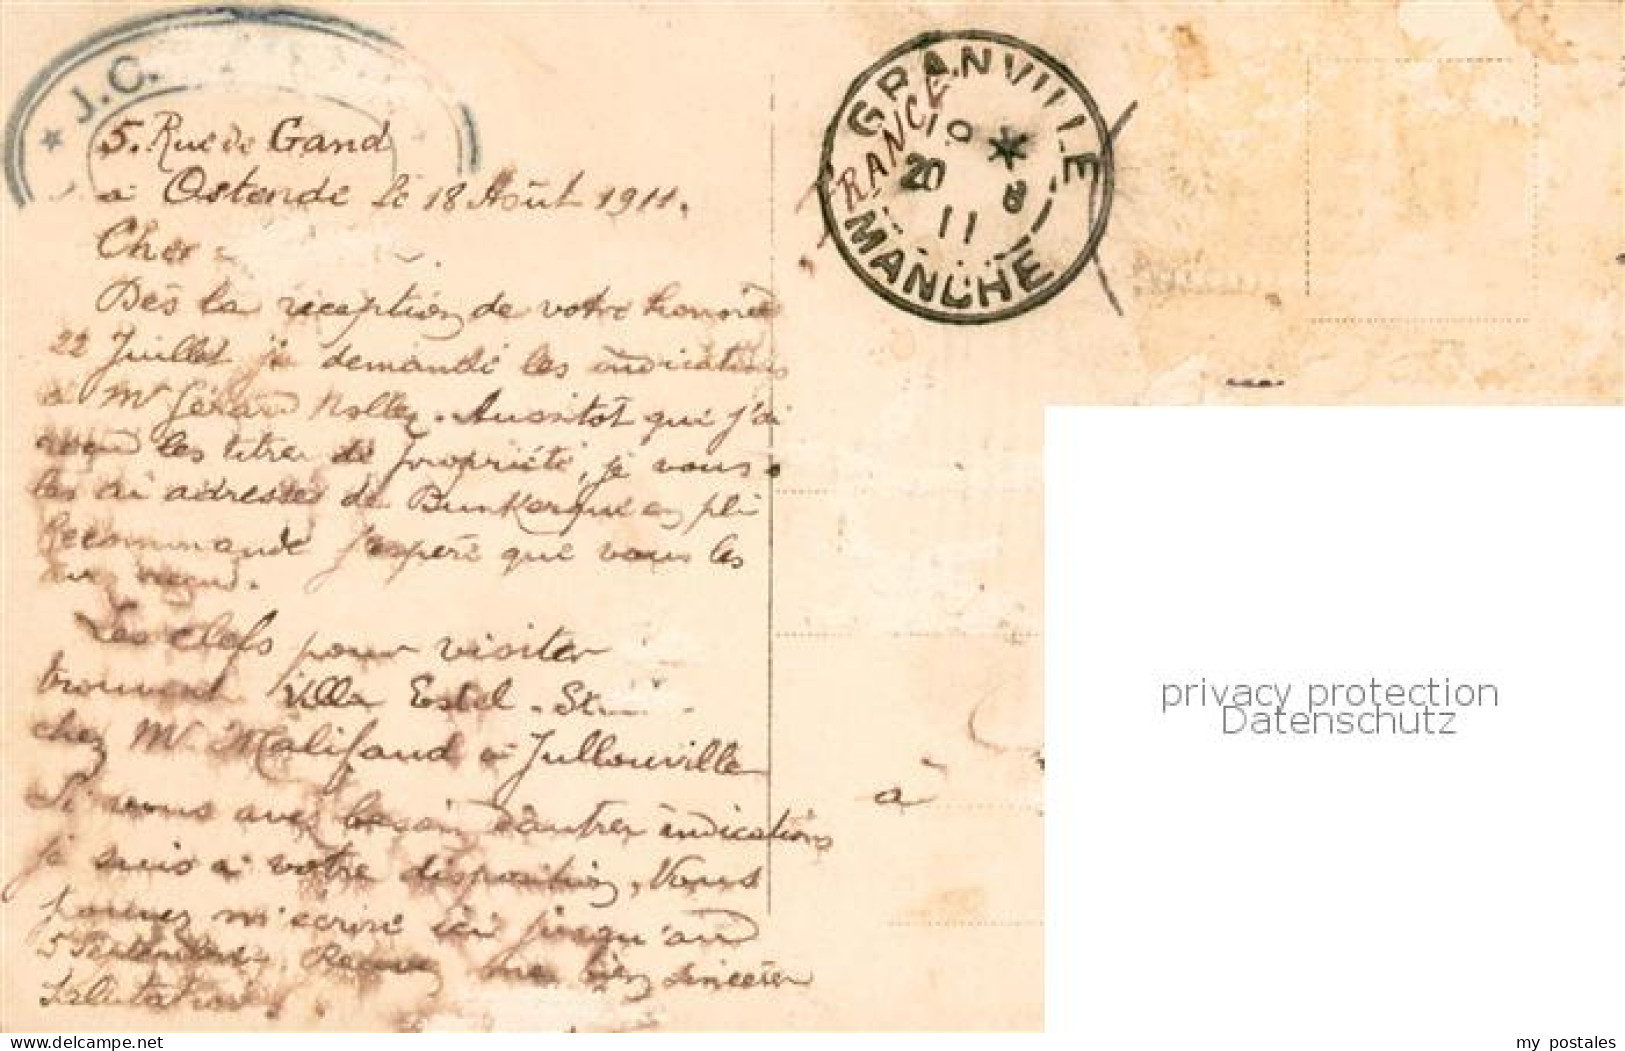 J.C.
5. Rue de Gand
à Ostende le 18 Août 1911.
Cher
Dès la réception de votre honnée
22 Juillet je demandé les indications
à Mr Gérard Nollez. Aussitot qui j'ai
les titres de propriété, je vous
les ai adresses de Dunkerque en pli
Recommandé j'espère que vous les
avez reçus.
Les clefs pour visiter
trouvent Villa Estel
chez Mr. Malifaud à Jullouville
Si vous avez besoin d'autres indications
je suis à votre disposition, Vous
pouvez m'écrire ici jusqu'au
5 Septembre, Recevez mes bien sincères
Salutations
GRANVILLE
RANCE
10 *
20 8
11
MANCHE
à
privacy protection
Datenschutz
www.delcampe.net
my_postales